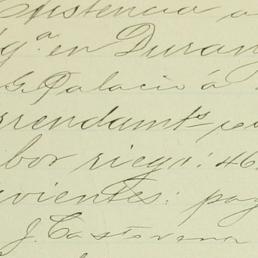 sistencia a
g.ª en Duran
G. Palacio á
rrendam.ts
bor riego: 46
vientes: pag
J. Castorena